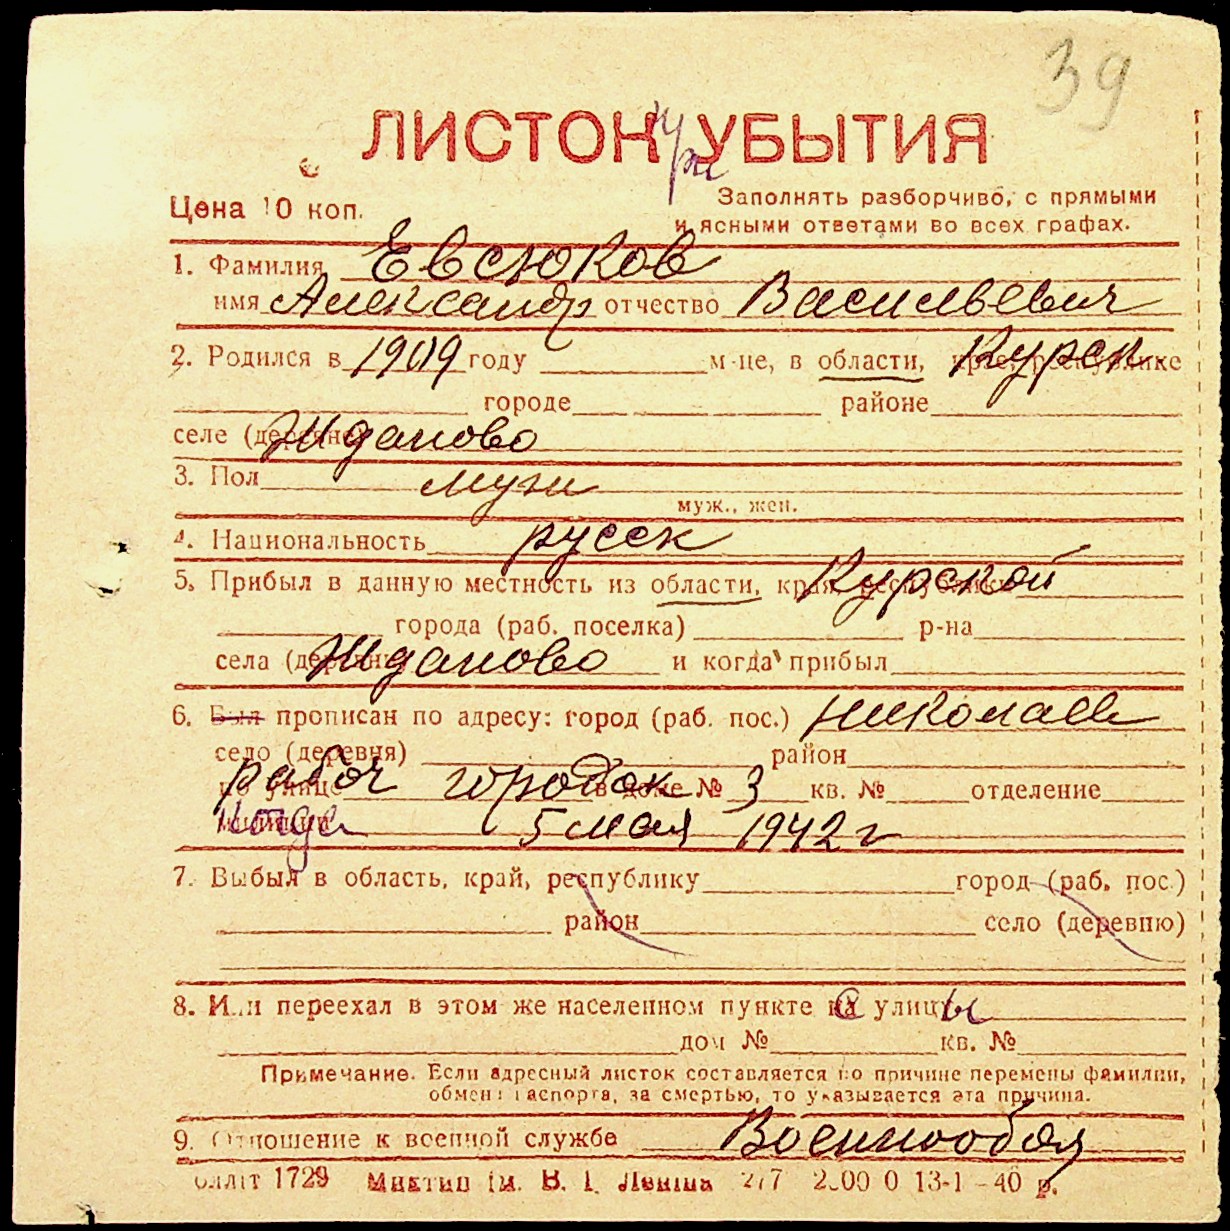 39
ЛИСТОК при УБЫТИЯ
Цена 10 коп.
Заполнять разборчиво, с прямыми
и ясными ответами во всех графах.
1. Фамилия Евсюков
имя Александр отчество Васильевич
2. Родился в 1909 году м-це, в области, крае, республике Курск.
городе районе
селе (деревне) Жданово
3. Пол муж
муж., жен.
4. Национальность русск
5. Прибыл в данную местность из области, края, республики Курской
города (раб. поселка) р-на
села (деревни) Жданово и когда прибыл
6. Был прописан по адресу: город (раб. пос.) Николаев
село (деревня) район
по улице рабоч городок в доме № 3 кв. № отделение
милиции когда 5 мая 1942 г
7. Выбыл в область, край, республику город (раб. пос.)
район село (деревню)
8. Или переехал в этом же населенном пункте на с улицы
дом № кв. №
Примечание. Если адресный листок составляется по причине перемены фамилии,
обмена паспорта, за смертью, то указывается эта причина.
9. Отношение к военной службе Военнообяз
1729 им. В. І. Леніна 277 13-1-40 р.